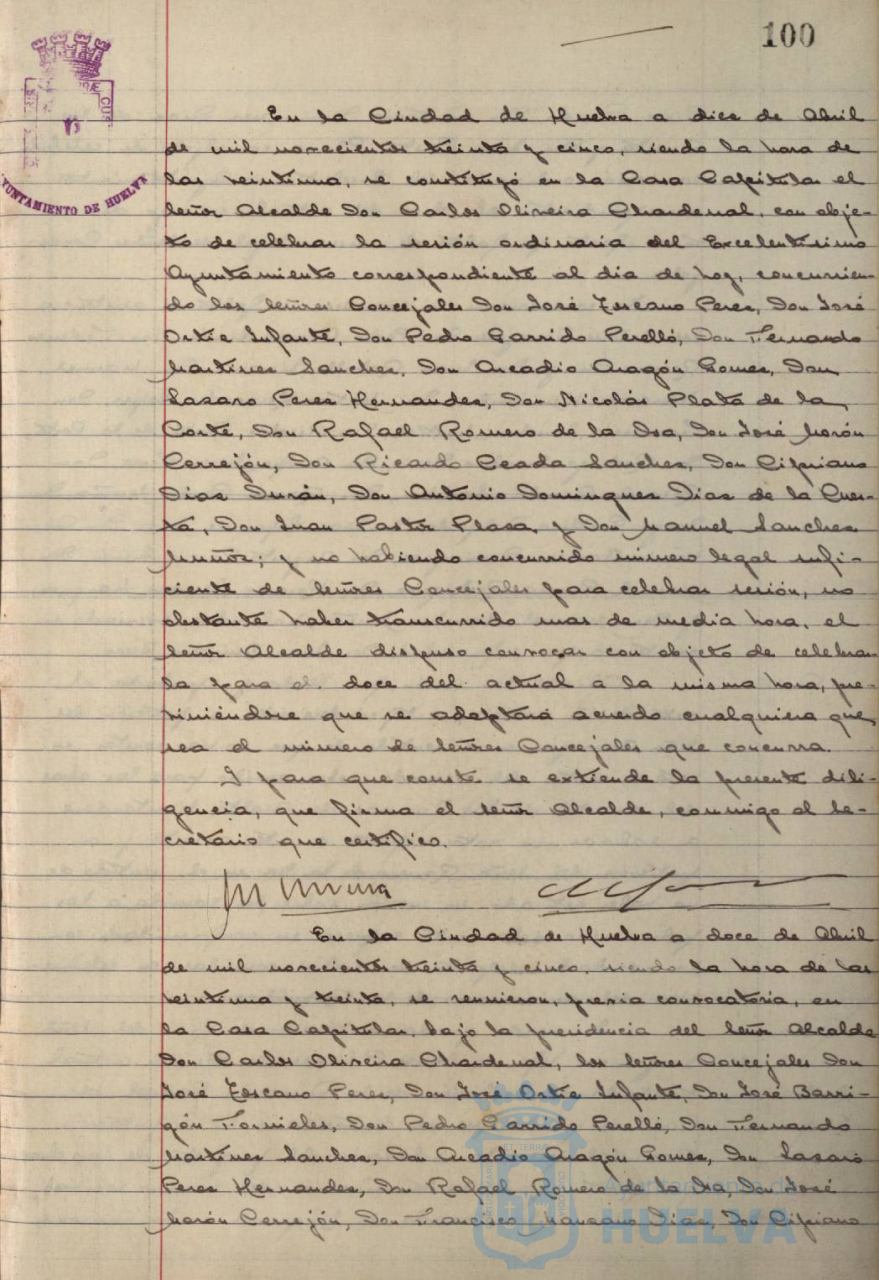 100
AYUNTAMIENTO DE HUELVA
En la Ciudad de Huelva a diez de Abril
de mil novecientos treinta y cinco, siendo la hora de
las veintiuna, se constituyó en la Casa Capitular el
Señor Alcalde Don Carlos Oliveira Chardenal, con obje-
to de celebrar la sesión ordinaria del Excelentísimo
Ayuntamiento correspondiente al dia de hoy, concurrien-
do los Señores Concejales Don José Ezcano Perez, Don José
Ortiz Infante, Don Pedro Garrido Perelló, Don Fernando
Martinez Sanchez, Don Arcadio Aragón Gomez, Don
Lazaro Perez Hernandez, Don Nicolás Plata de la
Corte, Don Rafael Romero de la Osa, Don José Morón
Cerrejón, Don Ricardo Ceada Sanchez, Don Cipriano
Diaz Durán, Don Antonio Dominguez Diaz de la Cues-
ta, Don Juan Pastor Plaza y Don Manuel Sanchez
Muñoz; y no habiendo concurrido número legal sufi-
ciente de Señores Concejales para celebrar sesión, no
obstante haber transcurrido mas de media hora, el
Señor Alcalde dispuso convocar con objeto de celebrar-
la para el doce del actual a la misma hora, pre-
viniéndose que se adoptará acuerdo cualquiera que
sea el número de Señores Concejales que concurra.
Y para que conste se extiende la presente dili-
gencia, que firma el Señor Alcalde, conmigo el Se-
cretario que certifico.
En la Ciudad de Huelva a doce de Abril
de mil novecientos treinta y cinco, siendo la hora de las
veintiuna y treinta, se reunieron, previa convocatoria, en
la Casa Capitular, bajo la presidencia del Señor Alcalde
Don Carlos Oliveira Chardenal, los Señores Concejales Don
José Ezcano Perez, Don José Ortiz Infante, Don José Barri-
gón Fornieles, Don Pedro Garrido Perelló, Don Fernando
Martinez Sanchez, Don Arcadio Aragón Gomez, Don Lazaro
Perez Hernandez, Don Rafael Romero de la Osa, Don José
Morón Cerrejón, Don Francisco Manzano Diaz, Don Cipriano
Ayuntamiento de
HUELVA